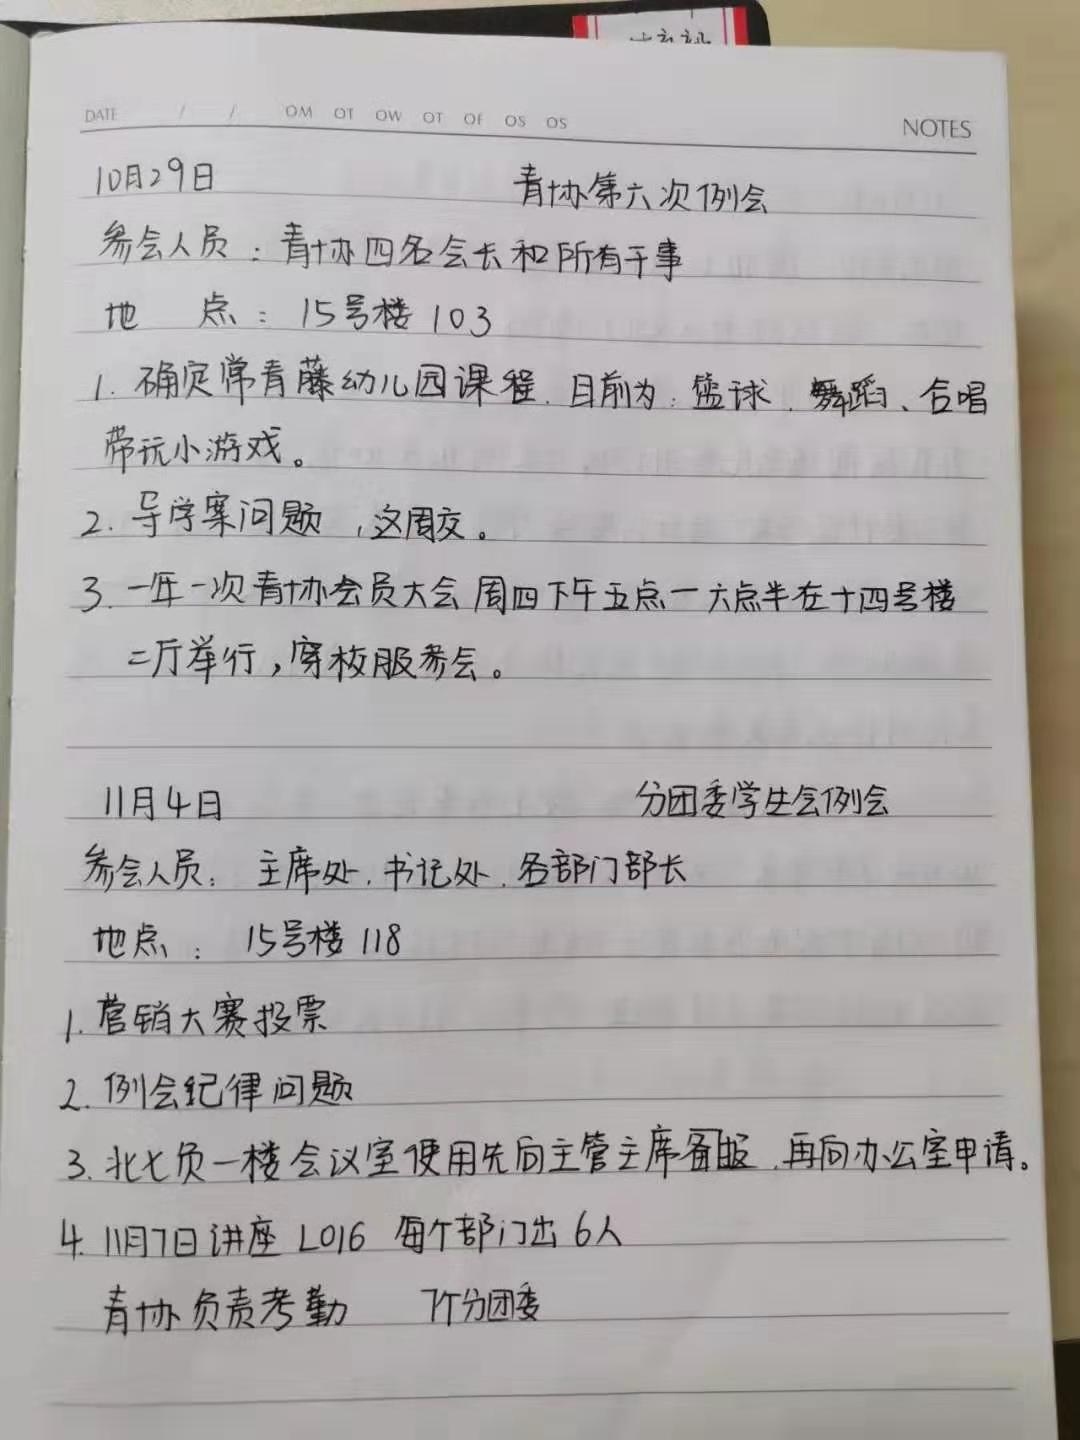 DATE / / OM OT OW OT OF OS OS
NOTES
10月29日 青协第六次例会
参会人员：青协四名会长和所有干事
地 点：15号楼103
1. 确定常青藤幼儿园课程.目前为:篮球、舞蹈、合唱
带玩小游戏。
2. 导学案问题，这周交。
3. 一年一次青协会员大会 周四下午五点一六点半在十四号楼
二厅举行，穿校服参会。
11月4日 分团委学生会例会
参会人员：主席处、书记处、各部门部长
地点：15号楼118
1. 营销大赛投票
2. 例会纪律问题
3. 北七负一楼会议室使用先向主管主席 ，再向办公室申请。
4. 11月7日讲座 L016 每个部门出6人
青协负责考勤 7个分团委